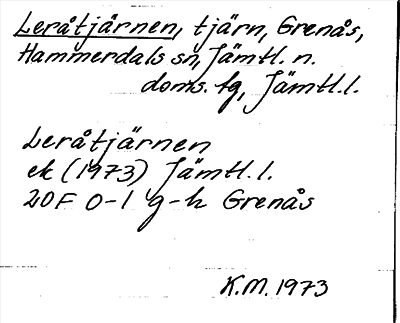 Leråtjärnen, tjärn, Grenås,
Hammerdals sn, Jämtl. n.
doms. fg, Jämtl. l.
Leråtjärnen
ek (1973) Jämtl. l.
20F 0-1 g-h Grenås
K.M. 1973